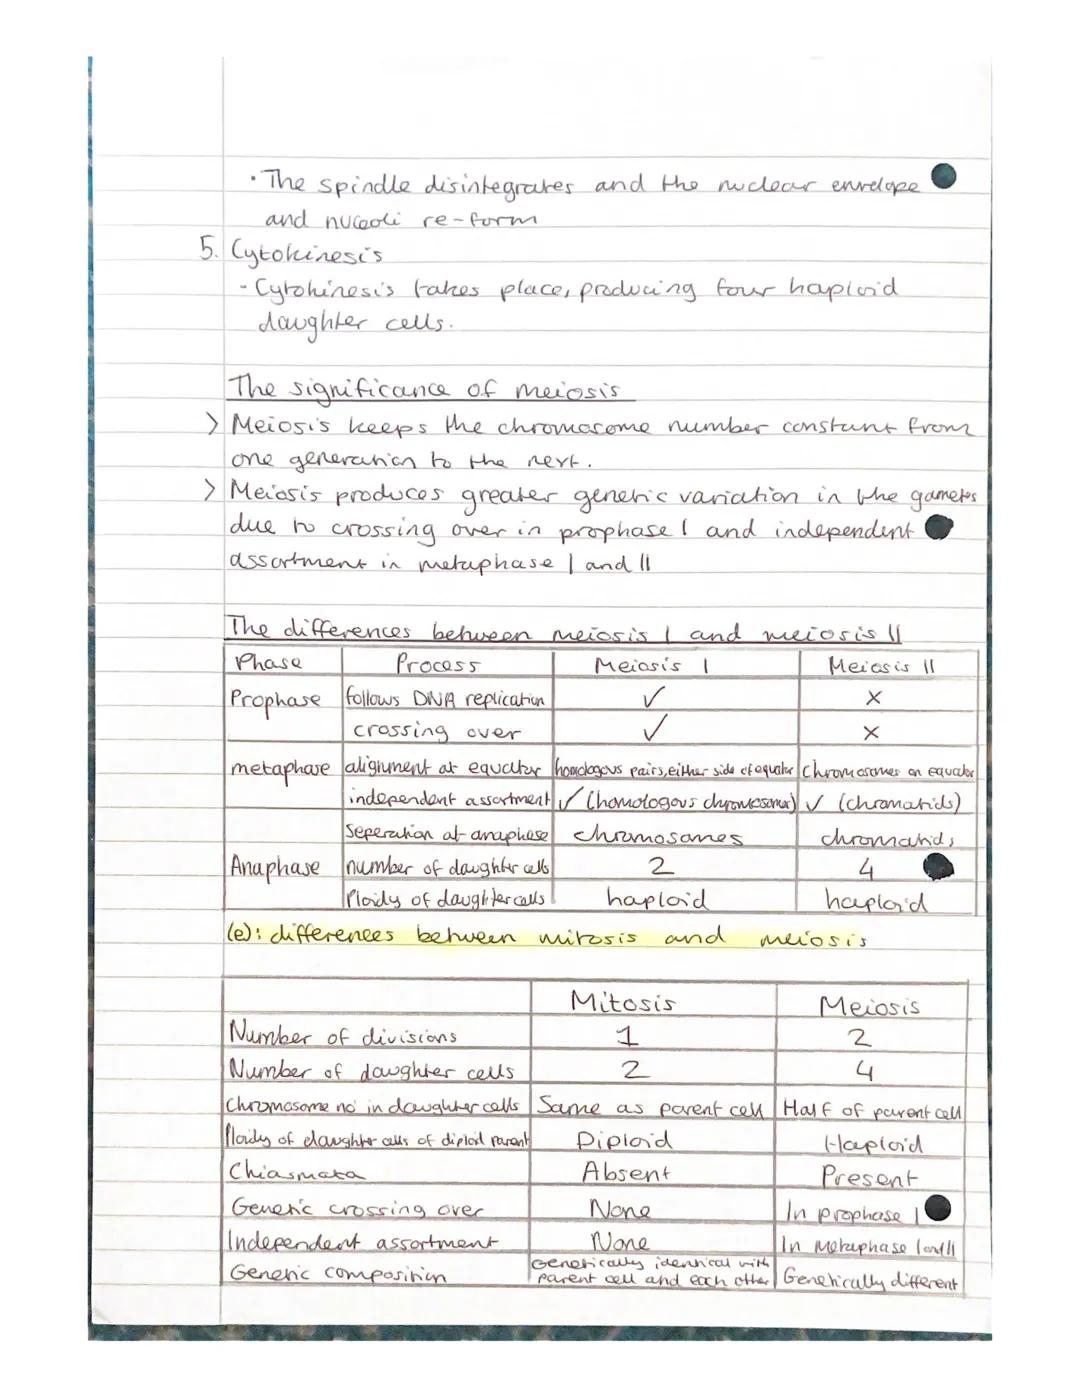 • The spindle disintegrates and the nuclear envelope
and nuceoli re-form
5. Cytokinesis
- Cytokinesis takes place, producing four haploid
daughter cells.
The significance of meiosis
> Meiosis keeps the chromosome number constant from
one generation to the next.
> Meiosis produces greater genetic variation in the gametes
due to crossing over in prophase I and independent
assortment in metaphase I and II
The differences between meiosis I and meiosis II
Phase Process Meiosis I Meiosis II
Prophase follows DNA replication ✓ ×
crossing over ✓ ×
metaphase alignment at equator homologous pairs, either side of equator Chromosomes on equator
independent assortment ✓ (homologous chromosomes) ✓ (chromatids)
Seperation at anaphase chromosomes chromatids
Anaphase number of daughter cells 2 4
Ploidy of daughter cells haploid haploid
(e): differences between mitosis and meiosis
Mitosis Meiosis
Number of divisions 1 2
Number of daughter cells 2 4
Chromosome no in daughter cells Same as parent cell Half of parent cell
Ploidy of daughter cells of diploid parent Diploid Haploid
Chiasmata Absent Present
Genetic crossing over None In prophase I
Independent assortment None In Metaphase I and II
Genetic composition Genetically identical with parent cell and each other Genetically different